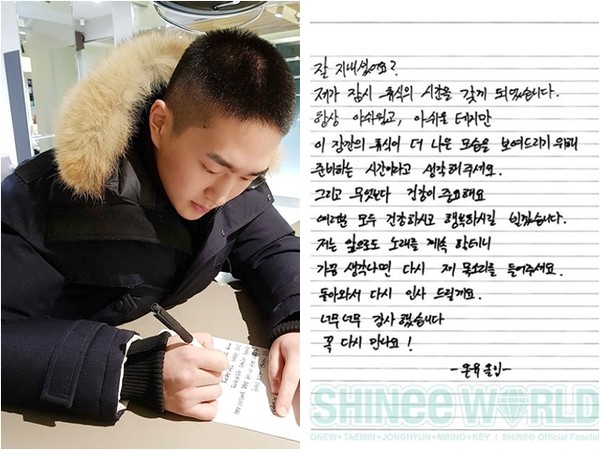 잘 지내셨어요?
제가 잠시 휴식의 시간을 갖게 되었습니다.
항상 아쉬웠고, 아쉬울 테지만
이 잠깐의 휴식이 더 나은 모습을 보여드리기 위해
준비하는 시간이라고 생각해주세요.
그리고 무엇보다 건강이 중요해요
여러분 모두 건강하시고 행복하시길 빌겠습니다.
저는 앞으로도 노래를 계속 할테니
가끔 생각나면 다시 제 목소리를 들어주세요.
돌아와서 다시 인사 드릴게요.
너무너무 감사했습니다
꼭 다시 만나요!
- 온유 올림-
SHINee WORLD
ONEW+TAEMIN+JONGHYUN+MINHO+KEY | SHINee Official Fanclub